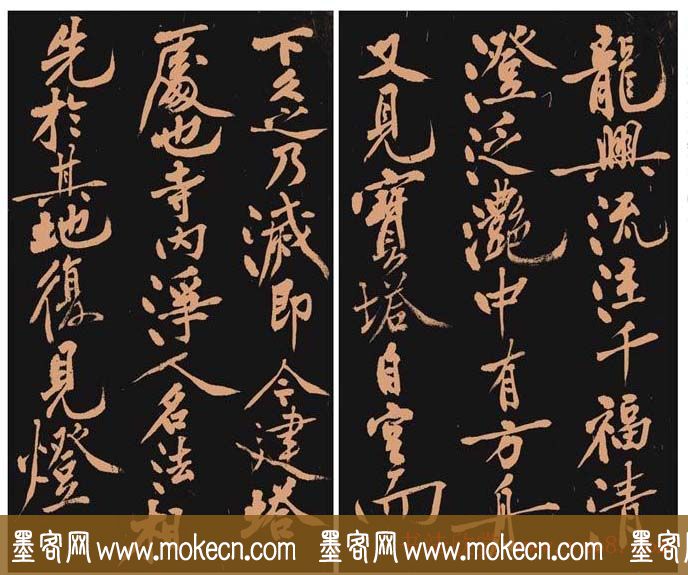 龍興流注千福清
澄泛灧中有方舟
又見寶塔自空而
下久之乃滅即今建塔
處也寺内淨人名法相
先於其地復見燈
墨客网 www.mokecn.com 墨客网 www.mokecn.com